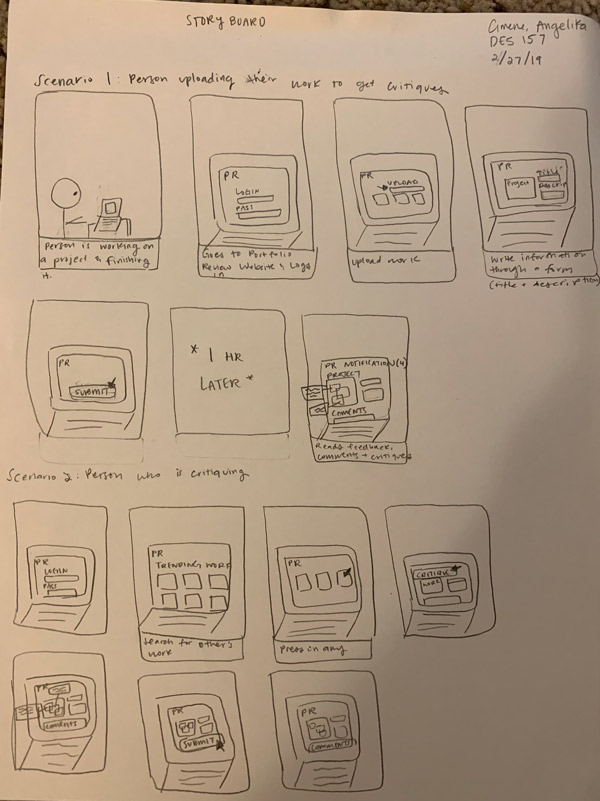 STORY BOARD
Cimene, Angelika
DES 157
2/27/19
Scenario 1: Person uploading their work to get critiques
Person is working on
a project & finishing
it.
PR
LOGIN
PASS
Goes to Portfolio
Review Website & Logs
in
PR
UPLOAD
upload work
PR
Project
TITLE
DESCRIP
Write information
through a form
(title + description)
PR
SUBMIT
* 1 HR
LATER *
PR NOTIFICATION(4)
PROJECT
COMENTS
Reads feedback,
comments + critiques
Scenario 2: Person who is critiquing
PR
LOGIN
PASS
PR
TRENDING WORK
Search for other's
work
PR
Press in any
CRITIQUE
WORK
PR
COMENTS
PR
SUBMIT
PR
COMMENTS